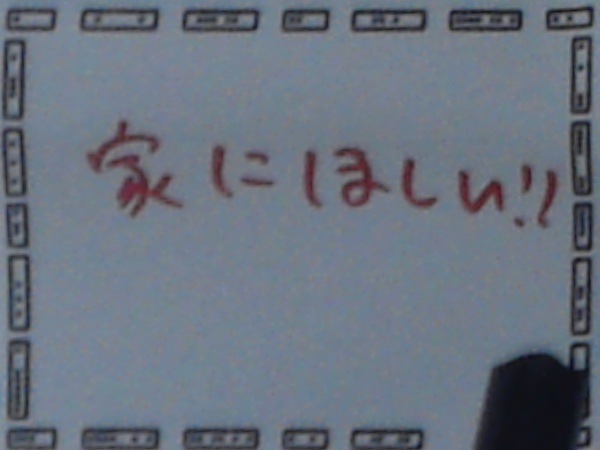 家にほしい!!